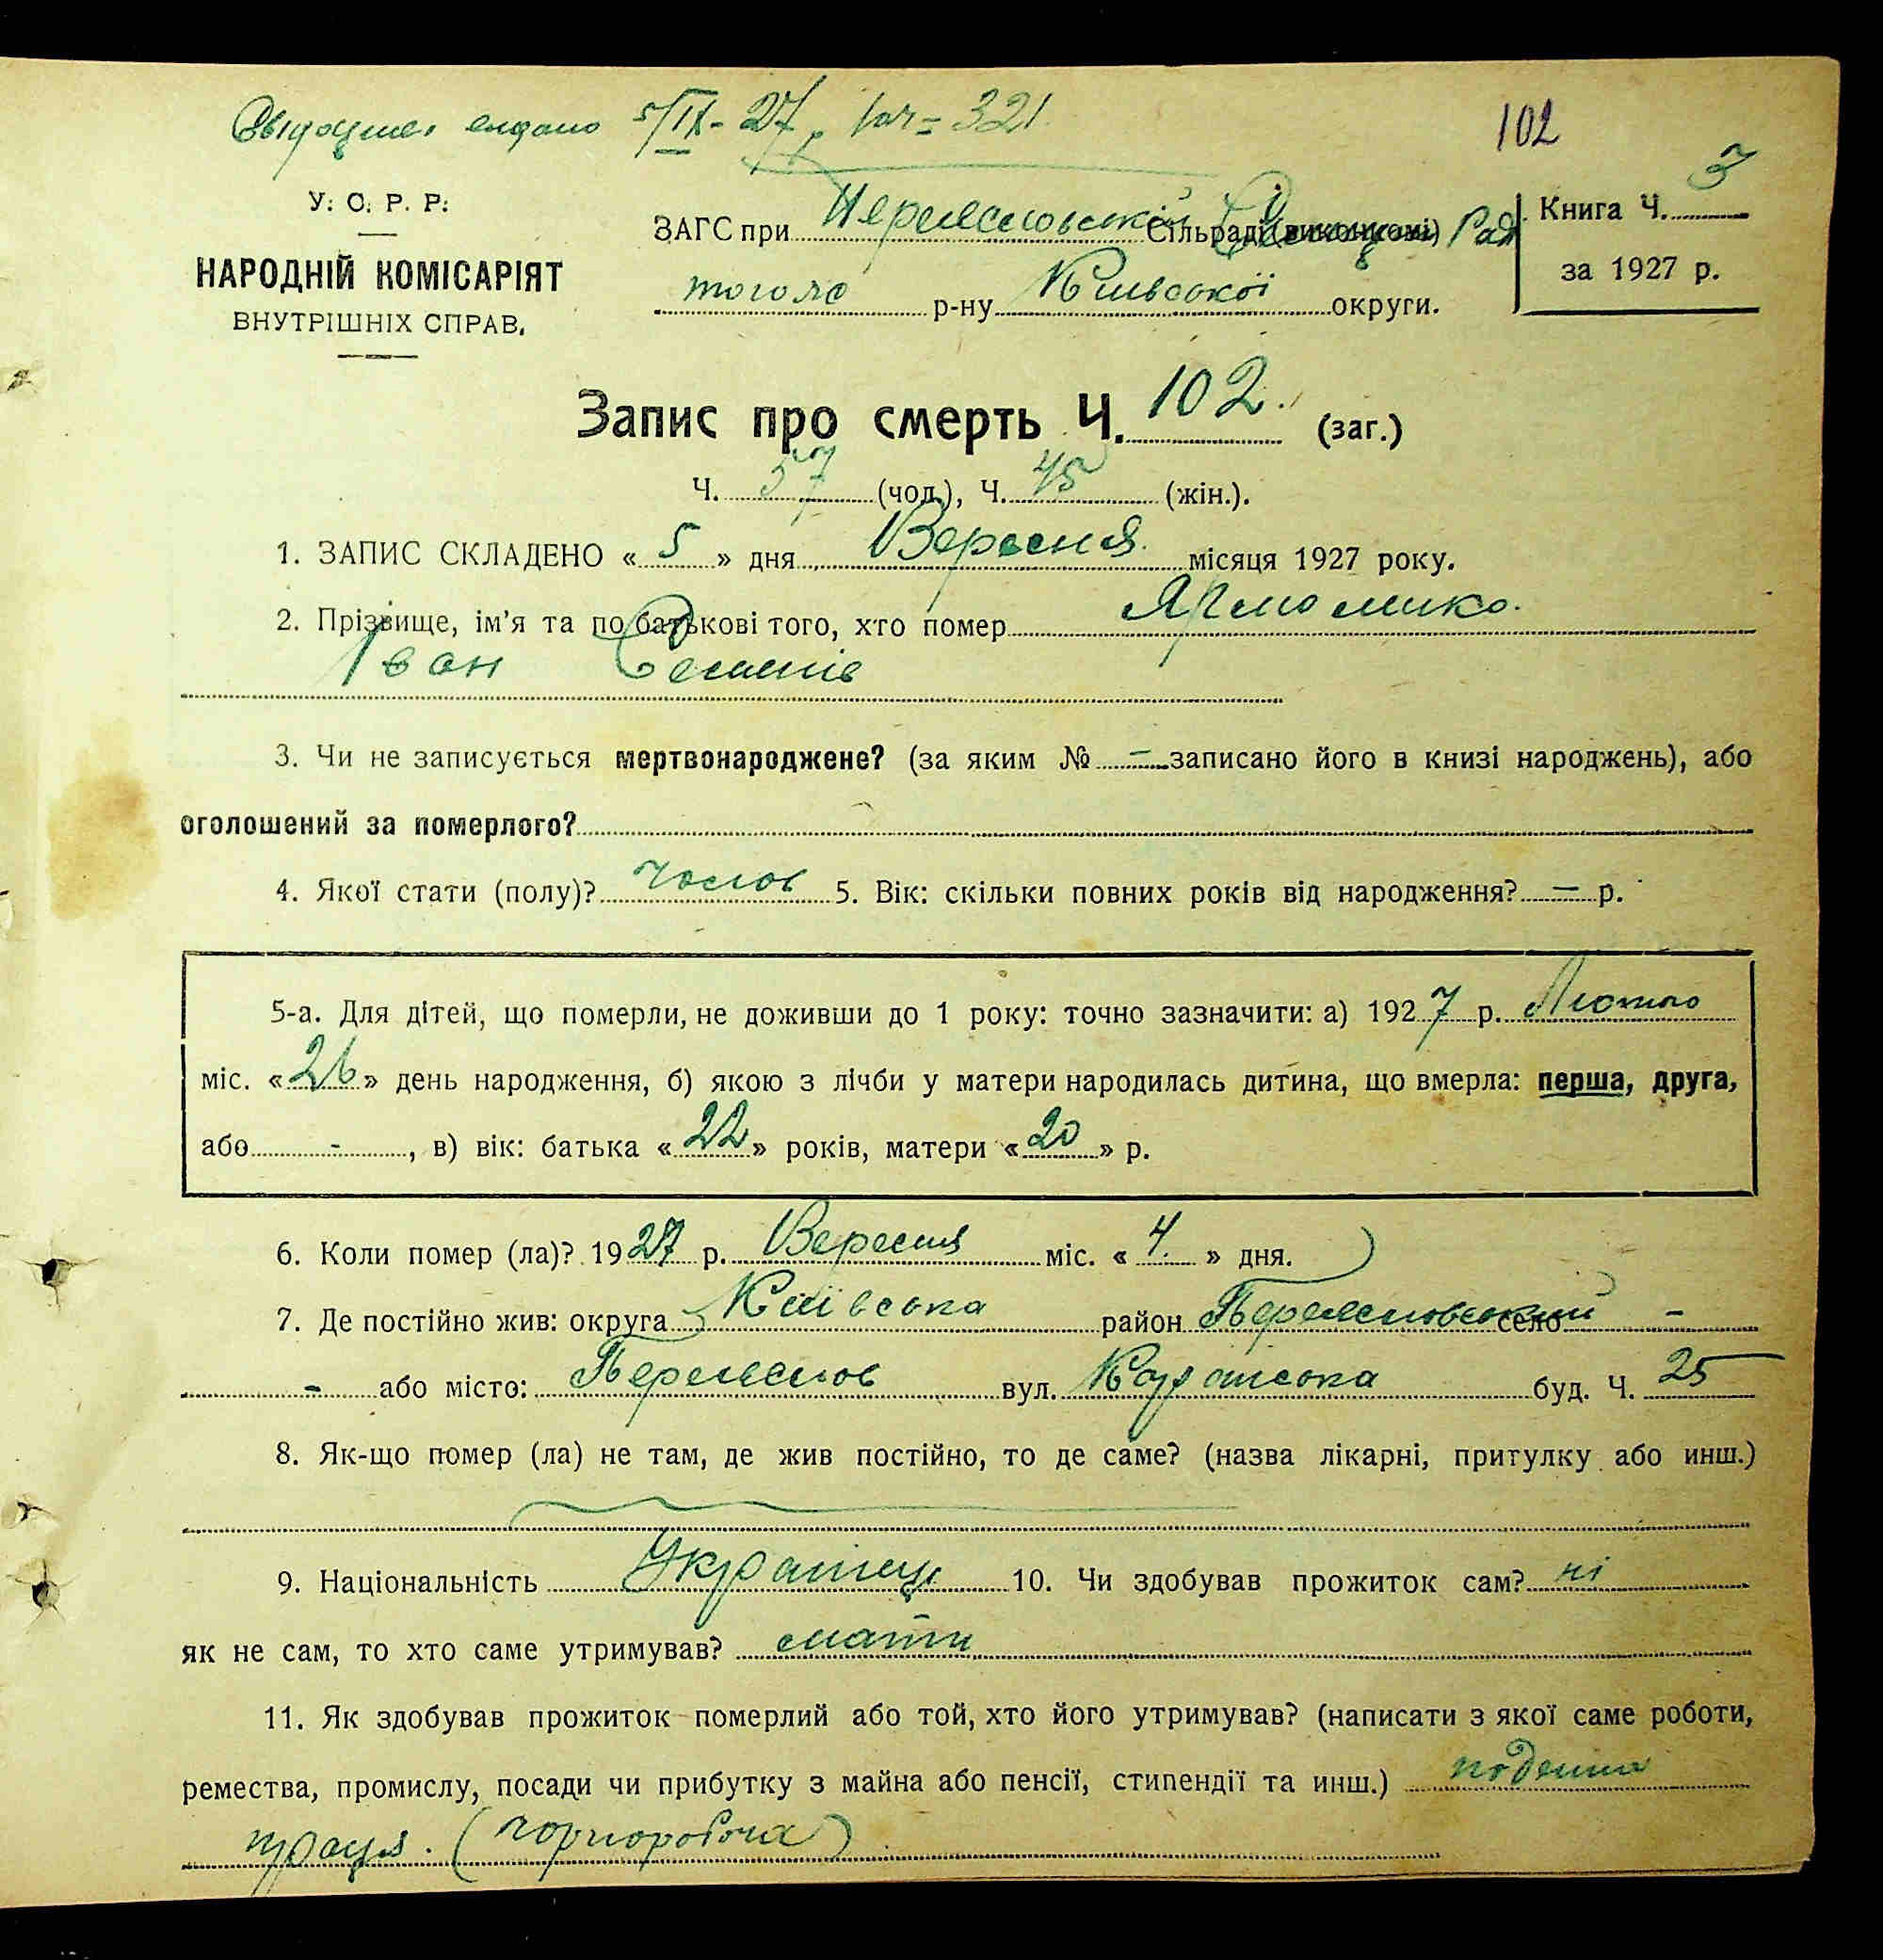 видано 5/IX-27, № 321
102
У. С. Р. Р.
НАРОДНІЙ КОМІСАРІЯТ
ВНУТРІШНІХ СПРАВ.
ЗАГС при Сільраді (виконкомі) Рад
того ж р-ну Київської округи.
Книга Ч. 3
за 1927 р.
Запис про смерть Ч. 102. (заг.)
Ч. 57 (чол.), Ч. 45 (жін.).
1. ЗАПИС СКЛАДЕНО « 5 » дня Вересня місяця 1927 року.
2. Прізвище, ім'я та по батькові того, хто помер
Іван
3. Чи не записується мертвонароджене? (за яким № – записано його в книзі народжень), або
оголошений за померлого?
4. Якої стати (полу)? Чолов 5. Вік: скільки повних років від народження? – р.
5-а. Для дітей, що померли, не доживши до 1 року: точно зазначити: а) 1927 р. Лютого
міс. « 26 » день народження, б) якою з лічби у матери народилась дитина, що вмерла: перша, друга,
або - , в) вік: батька « 22 » років, матери « 20 » р.
6. Коли помер (ла)? 1927 р. Вересня міс. « 4. » дня.
7. Де постійно жив: округа Київська район село –
– або місто: вул. буд. Ч. 25
8. Як-що помер (ла) не там, де жив постійно, то де саме? (назва лікарні, притулку або инш.)
9. Національність Українець 10. Чи здобував прожиток сам? ні
як не сам, то хто саме утримував? мати
11. Як здобував прожиток померлий або той, хто його утримував? (написати з якої саме роботи,
ремества, промислу, посади чи прибутку з майна або пенсії, стипендії та инш.) поденна
праця. (чорноробоча)